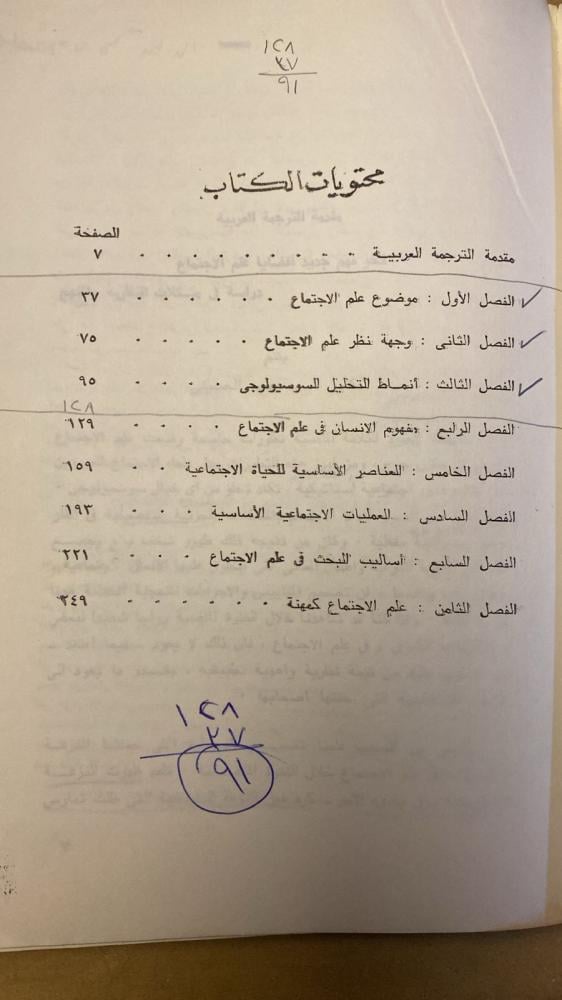 ١٢٨
٣٧
٩١
محتويات الكتاب
الصفحة
مقدمة الترجمة العربيـة ٠ ٠ ٠ ٠ ٠ ٠ ٠ ٠ ٧
الفصل الأول : موضوع علم الاجتماع ٠ ٠ ٠ ٠ ٠ ٠ ٣٧
الفصل الثانى : وجهة نظر علم الاجتماع ٠ ٠ ٠ ٠ ٠ ٧٥
الفصل الثالث : أنمـاط التحليل السوسيولوجى ٠ ٠ ٠ ٠ ٩٥
١٢٨
الفصل الرابع : مفهوم الانسان فى علم الاجتماع ٠ ٠ ٠ ٠ ١٢٩
الفصل الخامس : العناصر الأساسية للحياة الاجتماعية ٠ ٠ ١٥٩
الفصل السادس : العمليات الاجتماعية الأساسية ٠ ٠ ٠ ١٩٣
الفصل السابع : أساليب البحث فى علم الاجتماع ٠ ٠ ٠ ٢٢١
الفصل الثامن : علم الاجتماع كمهنة ٠ ٠ ٠ ٠ ٠ ٠ ٢٤٩
١٢٨
٣٧
٩١